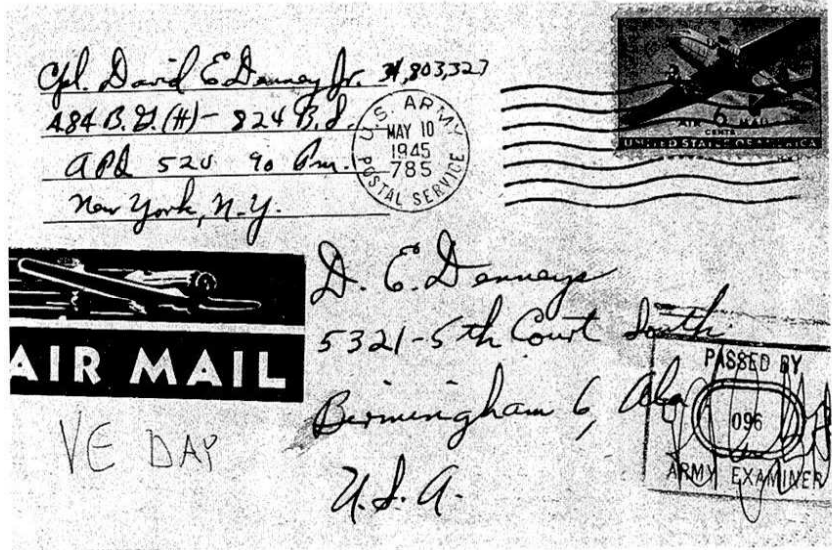 Cpl. David E Denney Jr. 34,803,327
484 B.G.(H) - 824 B.S.
APO 520 % Pm.
New York, N.Y.
U.S. ARMY
MAY 10
1945
785
POSTAL SERVICE
AIR 6 MAIL
CENTS
UNITED STATES OF AMERICA
AIR MAIL
VE DAY
D. E. Denneys
5321-5th Court South
Birmingham 6, Ala
U.S.A.
PASSED BY
096
ARMY EXAMINER